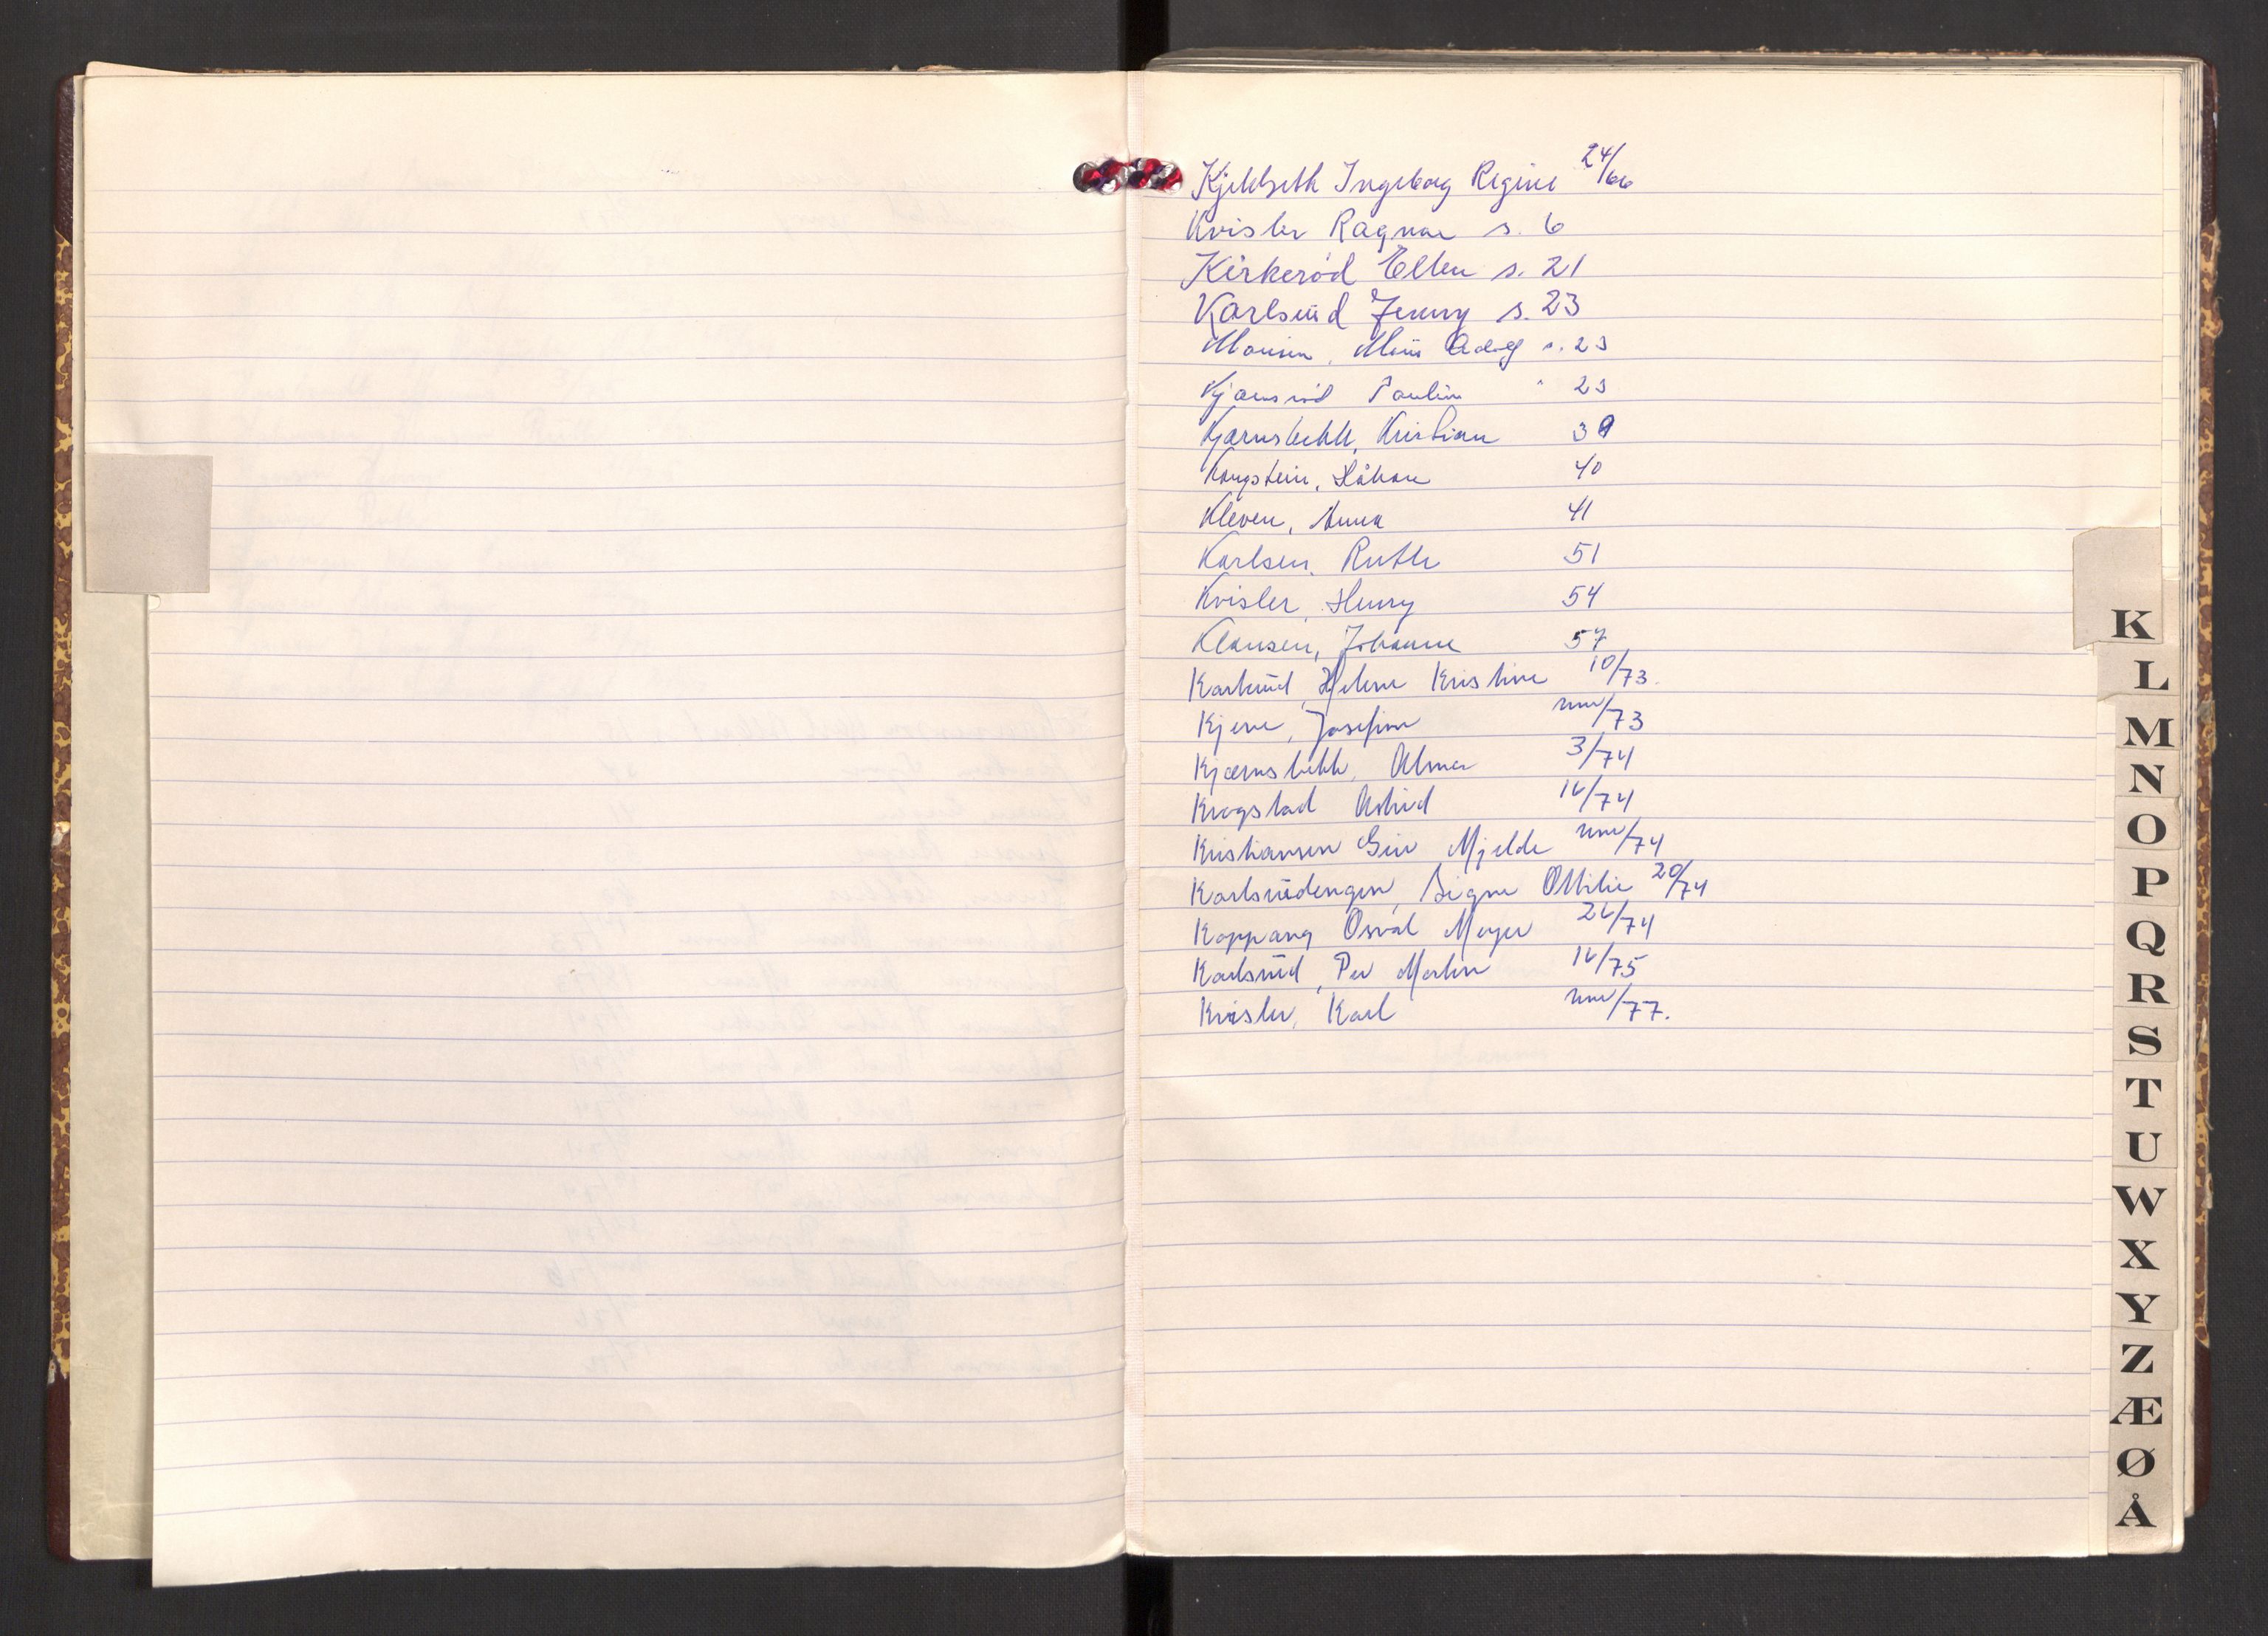 Kjekseth Ingeborg Regine 24/66
Kvisler Ragnar s. 6
Kirkerød Ellen s. 21
Karlsrüd Jenny s. 23
s. 23
Paulin " 23
Kjærnsbekk, Kristian 39
Kongstein, Håkon 40
Kleven, Anna 41
Karlsen, Ruth 51
Kvisler, Henry 54
Klausen, Johanne 57
Karlsrüd, Helene Kristine 10/73.
Kjerne, Josefine /73
Kjærnsbekk, Alma 3/74
Krogstad Astrid 12/74
Kristiansen Gine Mjelde /74
Karlsrüdengen, Signe Ottilie 20/74
Koppang Osval Meyer 22/74
Karlsrüd, Per Martin 12/75
Kvisler, Karl /77.
K
L
M
N
O
P
Q
R
S
T
U
W
X
Y
Z
Æ
Ø
Å